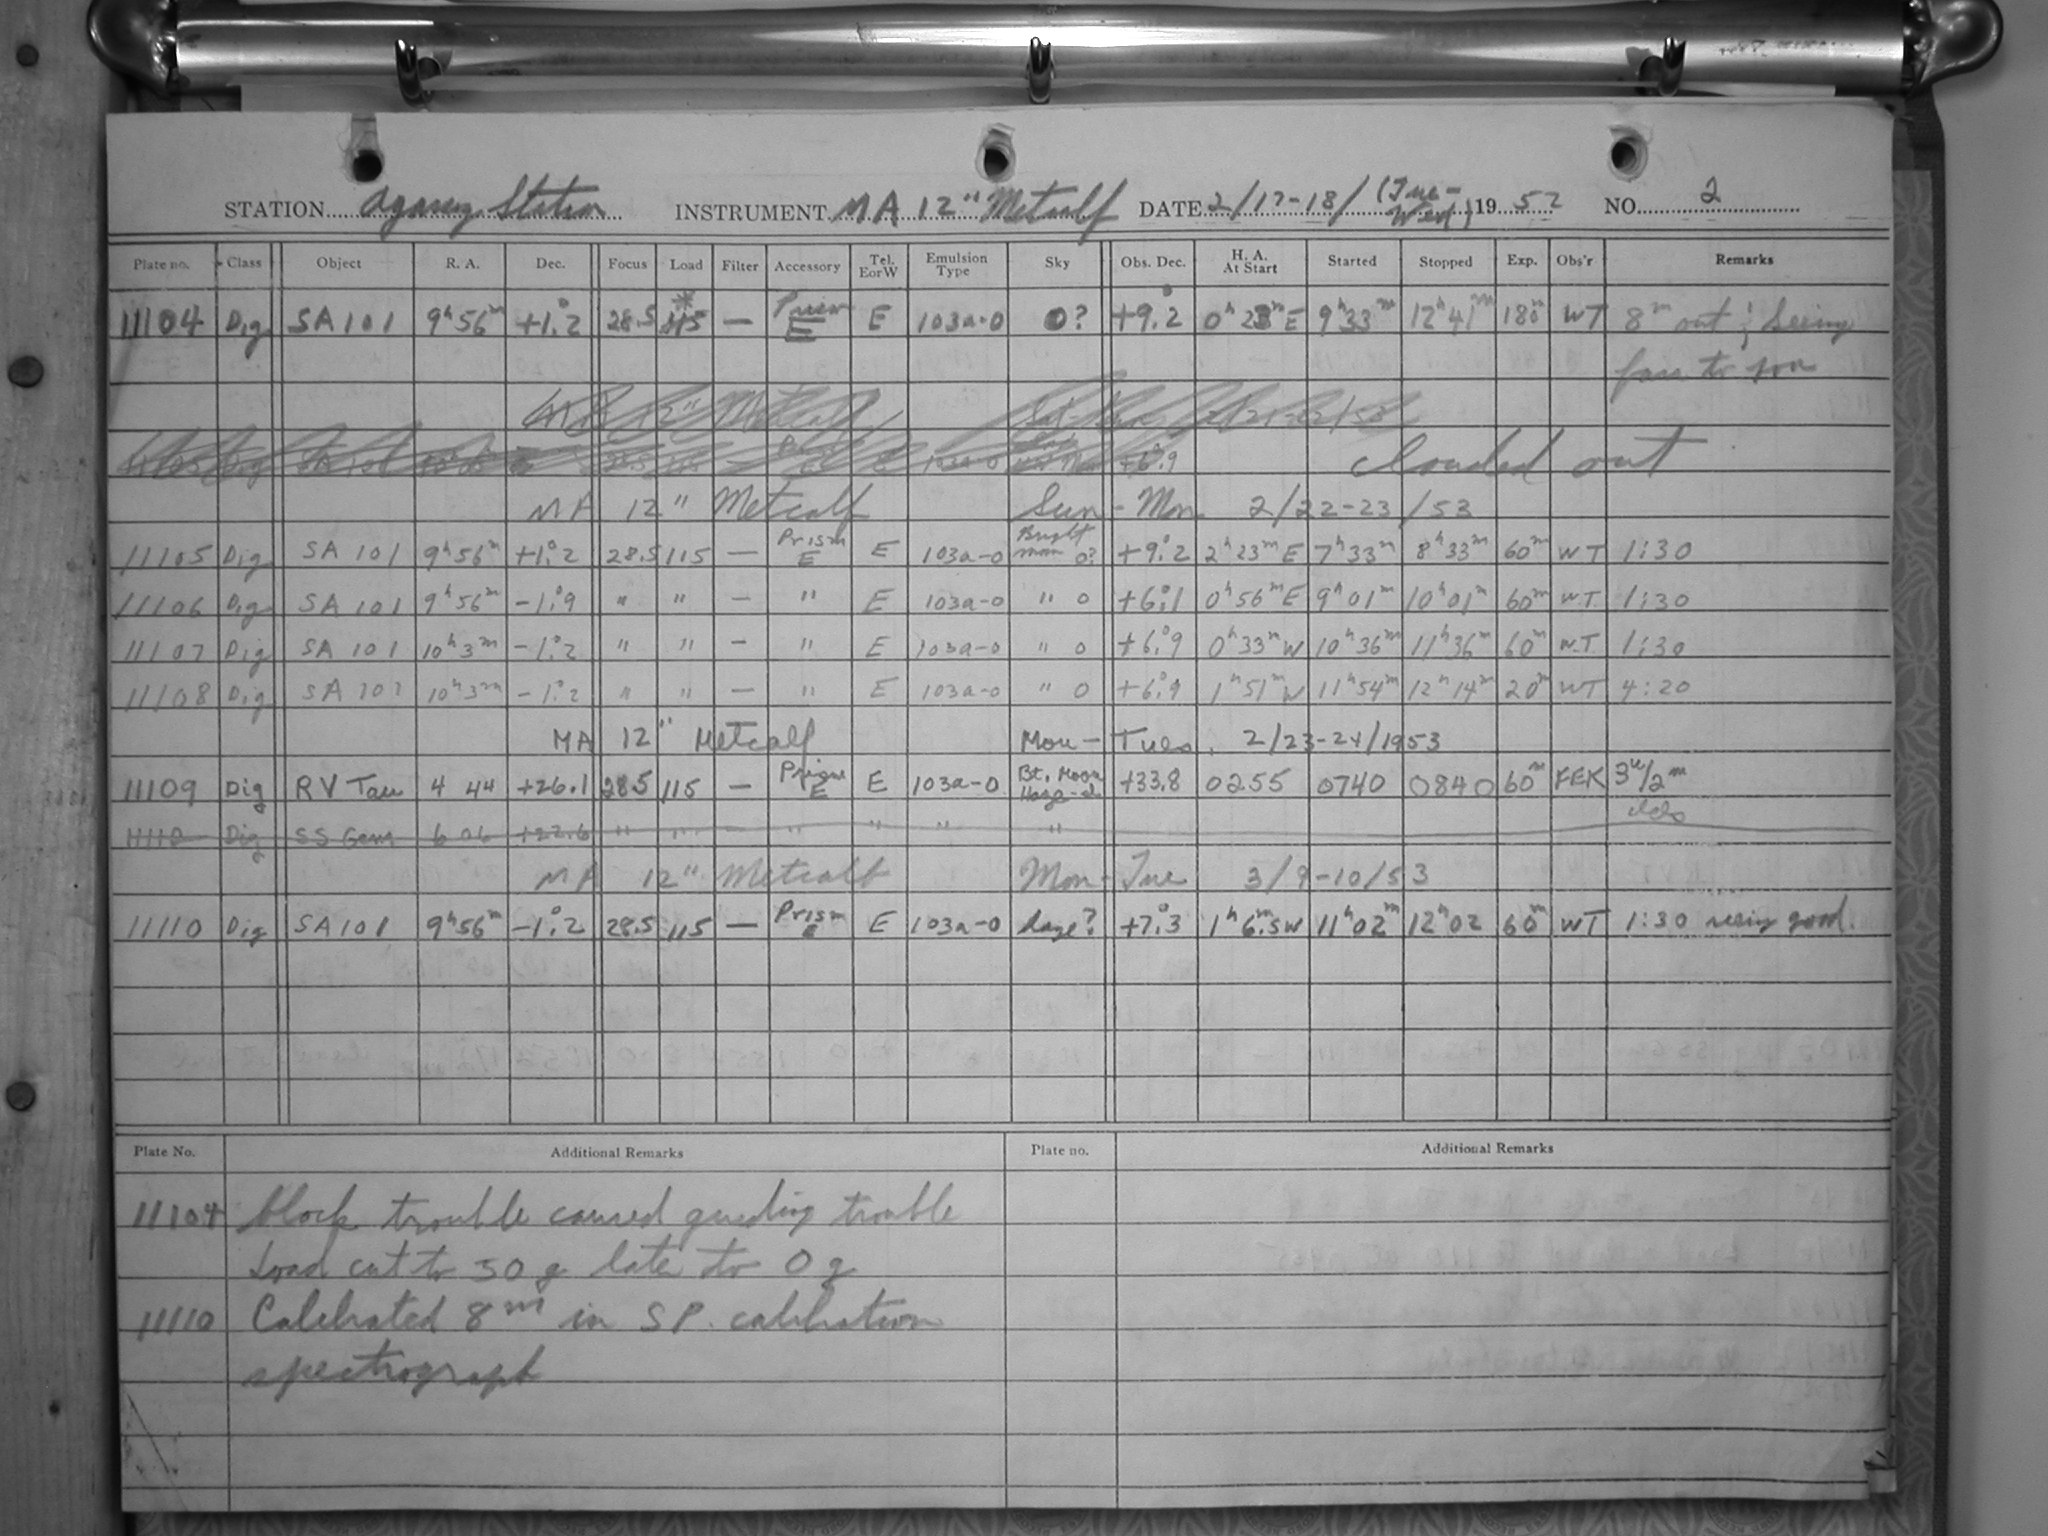 STATION Agassiz Station INSTRUMENT MA 12" Metcalf DATE 2/17-18/ (Tue-Wed) 19 52 NO. 2
Plate no. Class Object R. A. Dec. Focus Load Filter Accessory Tel. EorW Emulsion Type Sky Obs. Dec. H. A. At Start Started Stopped Exp. Obs'r Remarks
11104 Dig SA 101 9h56m +1°.2 28.5 115* — Prism E E 103a-0 0? +9°.2 0h 23m E 9h33m 12h41m 180m WT 8m out ; Seeing
fair to poor
MA 12" Metcalf
+6°.9 clouded out
MA 12" Metcalf Sun - Mon 2/22-23/53
11105 Dig SA 101 9h56m +1°.2 28.5 115 — Prism E E 103a-0 Bright moon 0? +9°.2 2h23m E 7h33m 8h33m 60m WT 1:30
11106 Dig SA 101 9h56m -1°.9 " " — " E 103a-0 " 0 +6°.1 0h56m E 9h01m 10h01m 60m WT 1:30
11107 Dig SA 101 10h3m -1°.2 " " — " E 103a-0 " 0 +6°.9 0h33m W 10h36m 11h36m 60m WT 1:30
11108 Dig SA 101 10h3m -1°.2 " " — " E 103a-0 " 0 +6°.9 1h51m W 11h54m 12h14m 20m WT 4:20
MA 12" Metcalf Mon - Tues. 2/23-24/1953
11109 Dig RV Tau 4 44 +26.1 28.5 115 — Prism E E 103a-0 Bt. Moon +33.8 0255 0740 0840 60m FEK
11110 Dig SS Gem 6 06 +22.6 " " — " " " "
MA 12" Metcalf Mon - Tue 3/9-10/53
11110 Dig SA 101 9h56m -1°.2 28.5 115 — Prism E E 103a-0 haze? +7°.3 1h 6m.5W 11h02m 12h02 60m WT 1:30 seeing good.
Plate No. Additional Remarks Plate no. Additional Remarks
11104 Clock trouble caused guiding trouble
Load cut to 50 g later to 0 g
11110 Calibrated 8m in SP. calibration
spectrograph